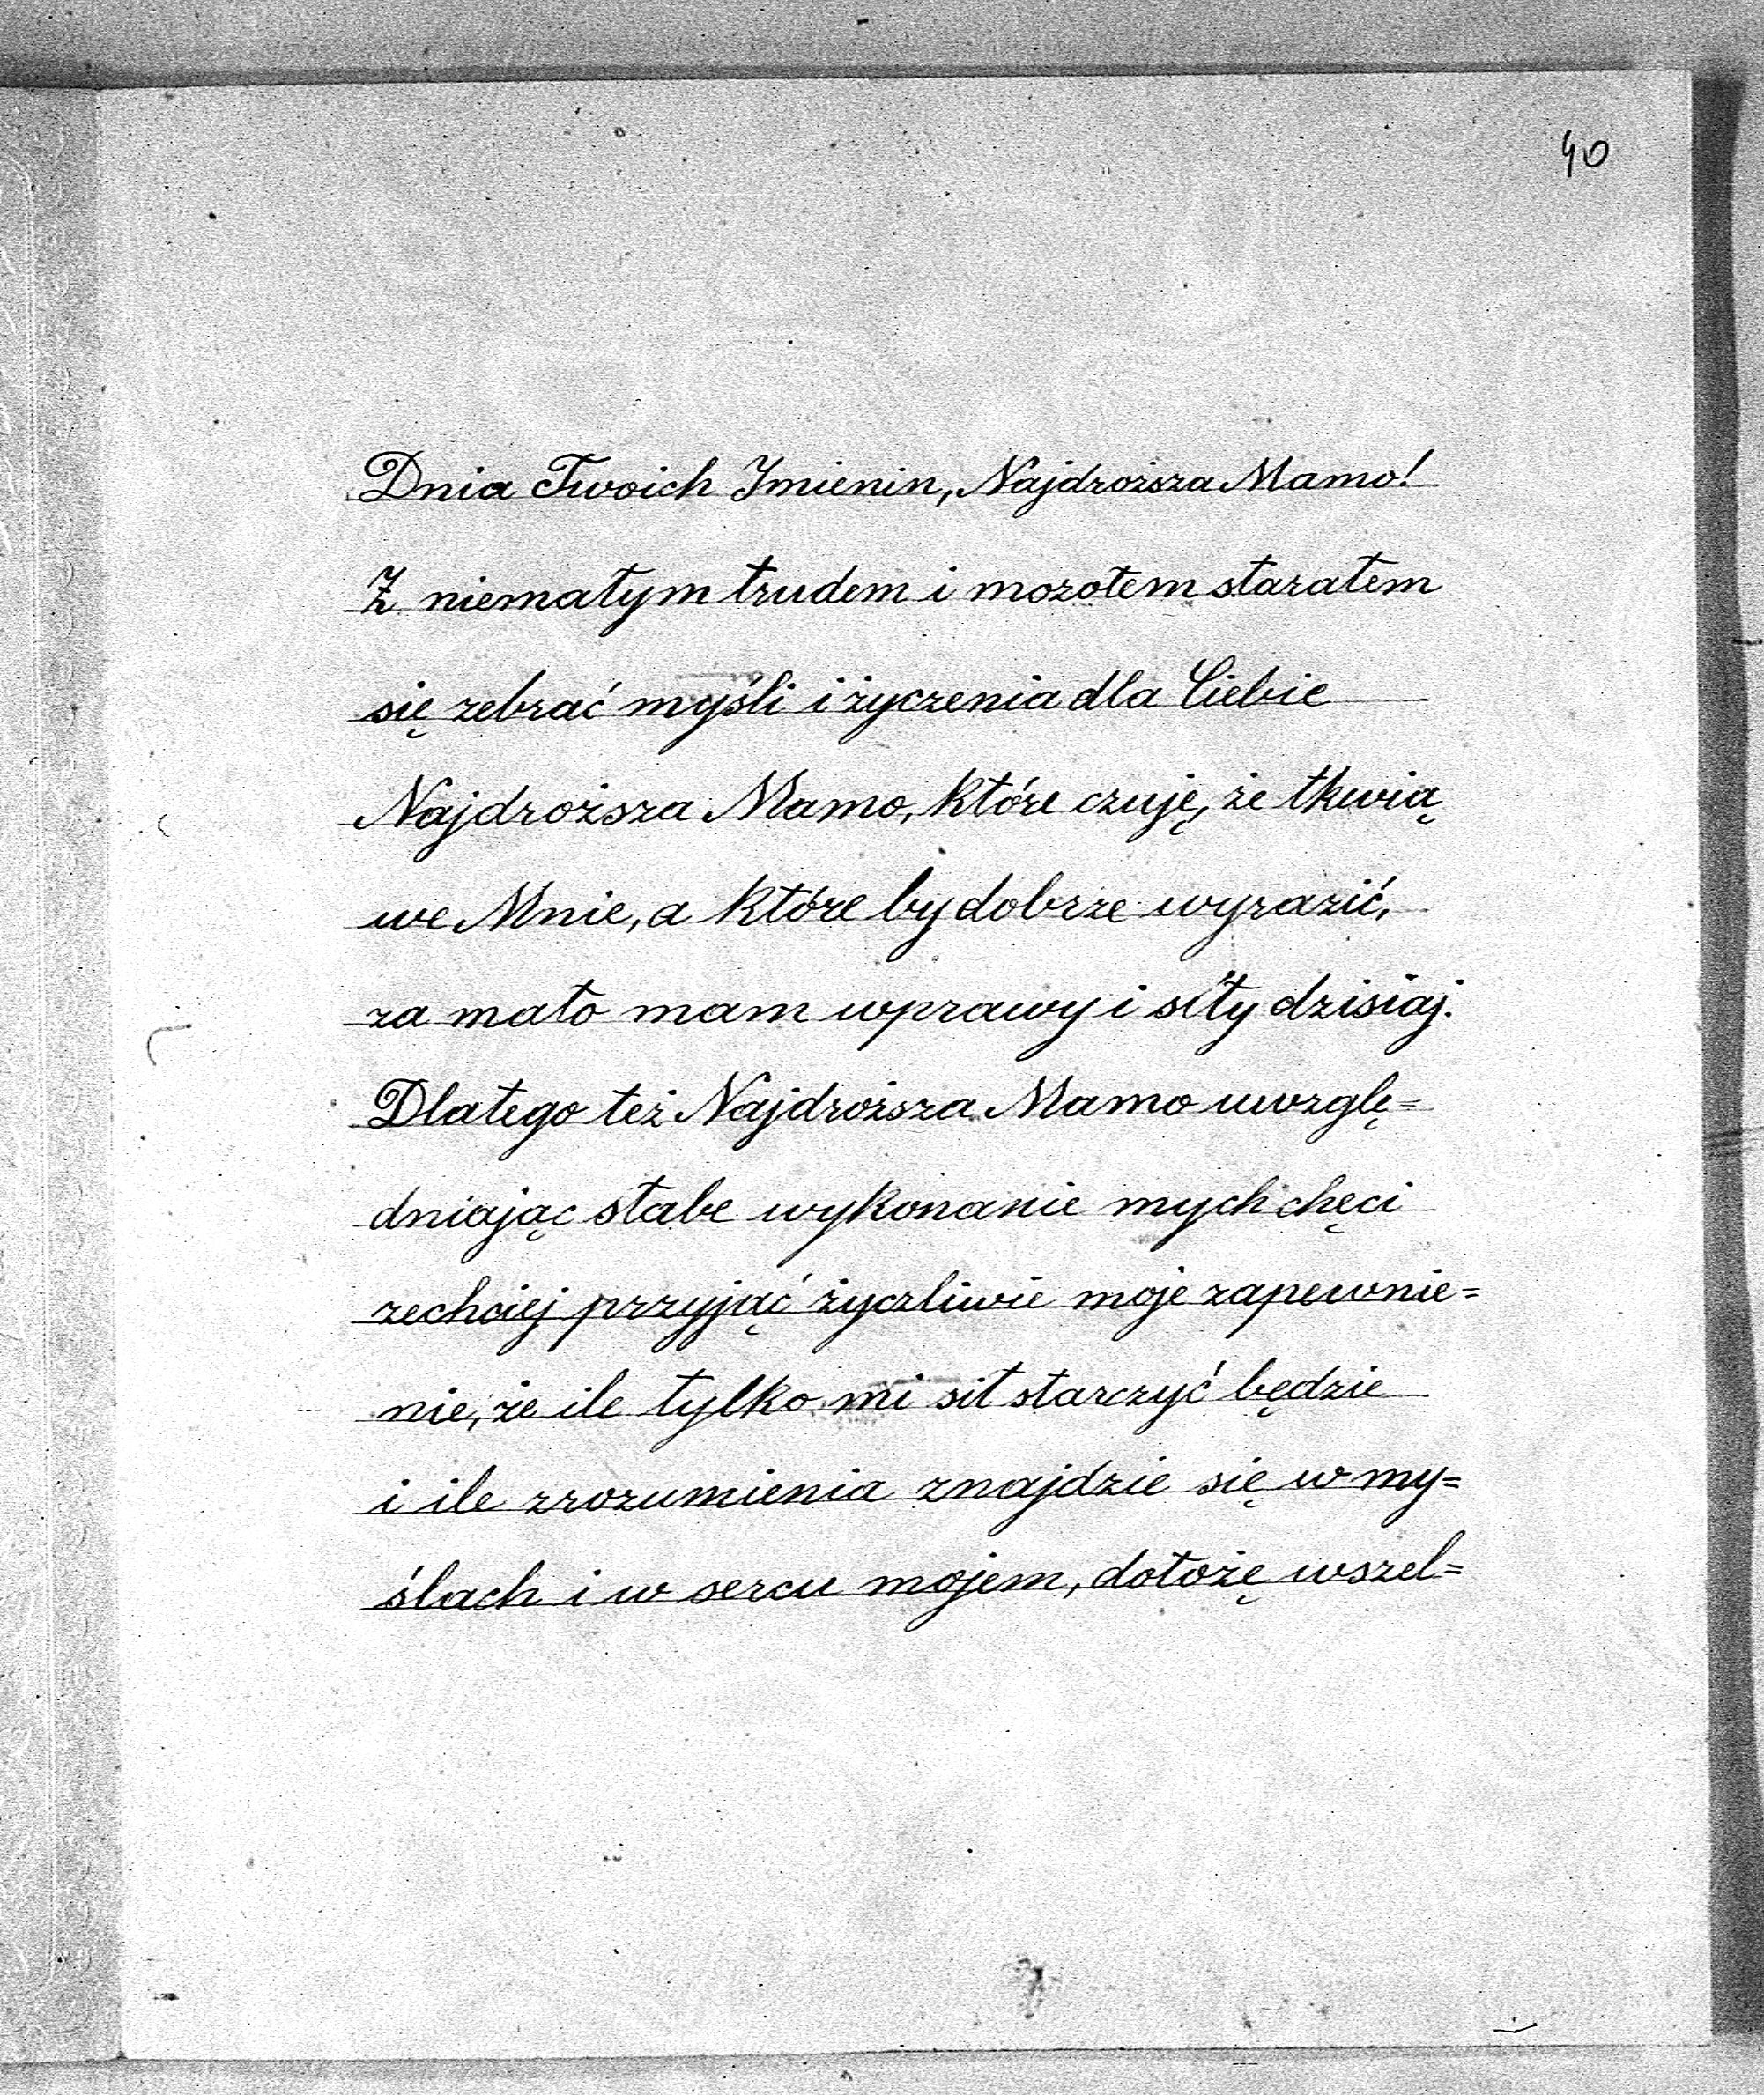 40
Dnia Twoich Imienin, Najdroższa Mamo!
Z niemałym trudem i mozołem starałem
się zebrać myśli i życzenia dla Ciebie
Najdroższa Mamo, które czuję, że tkwią
we Mnie, a które by dobrze wyrazić,
za mało mam wprawy i siły dzisiaj.
Dlatego też Najdroższa Mamo uwzglę=
dniając słabe wykonanie mych chęci
zechciej przyjąć życzliwie moje zapewnie=
nie, że ile tylko mi sił starczyć będzie
i ile zrozumienia znajdzie się w my=
ślach i w sercu mojem, dołożę wszel=